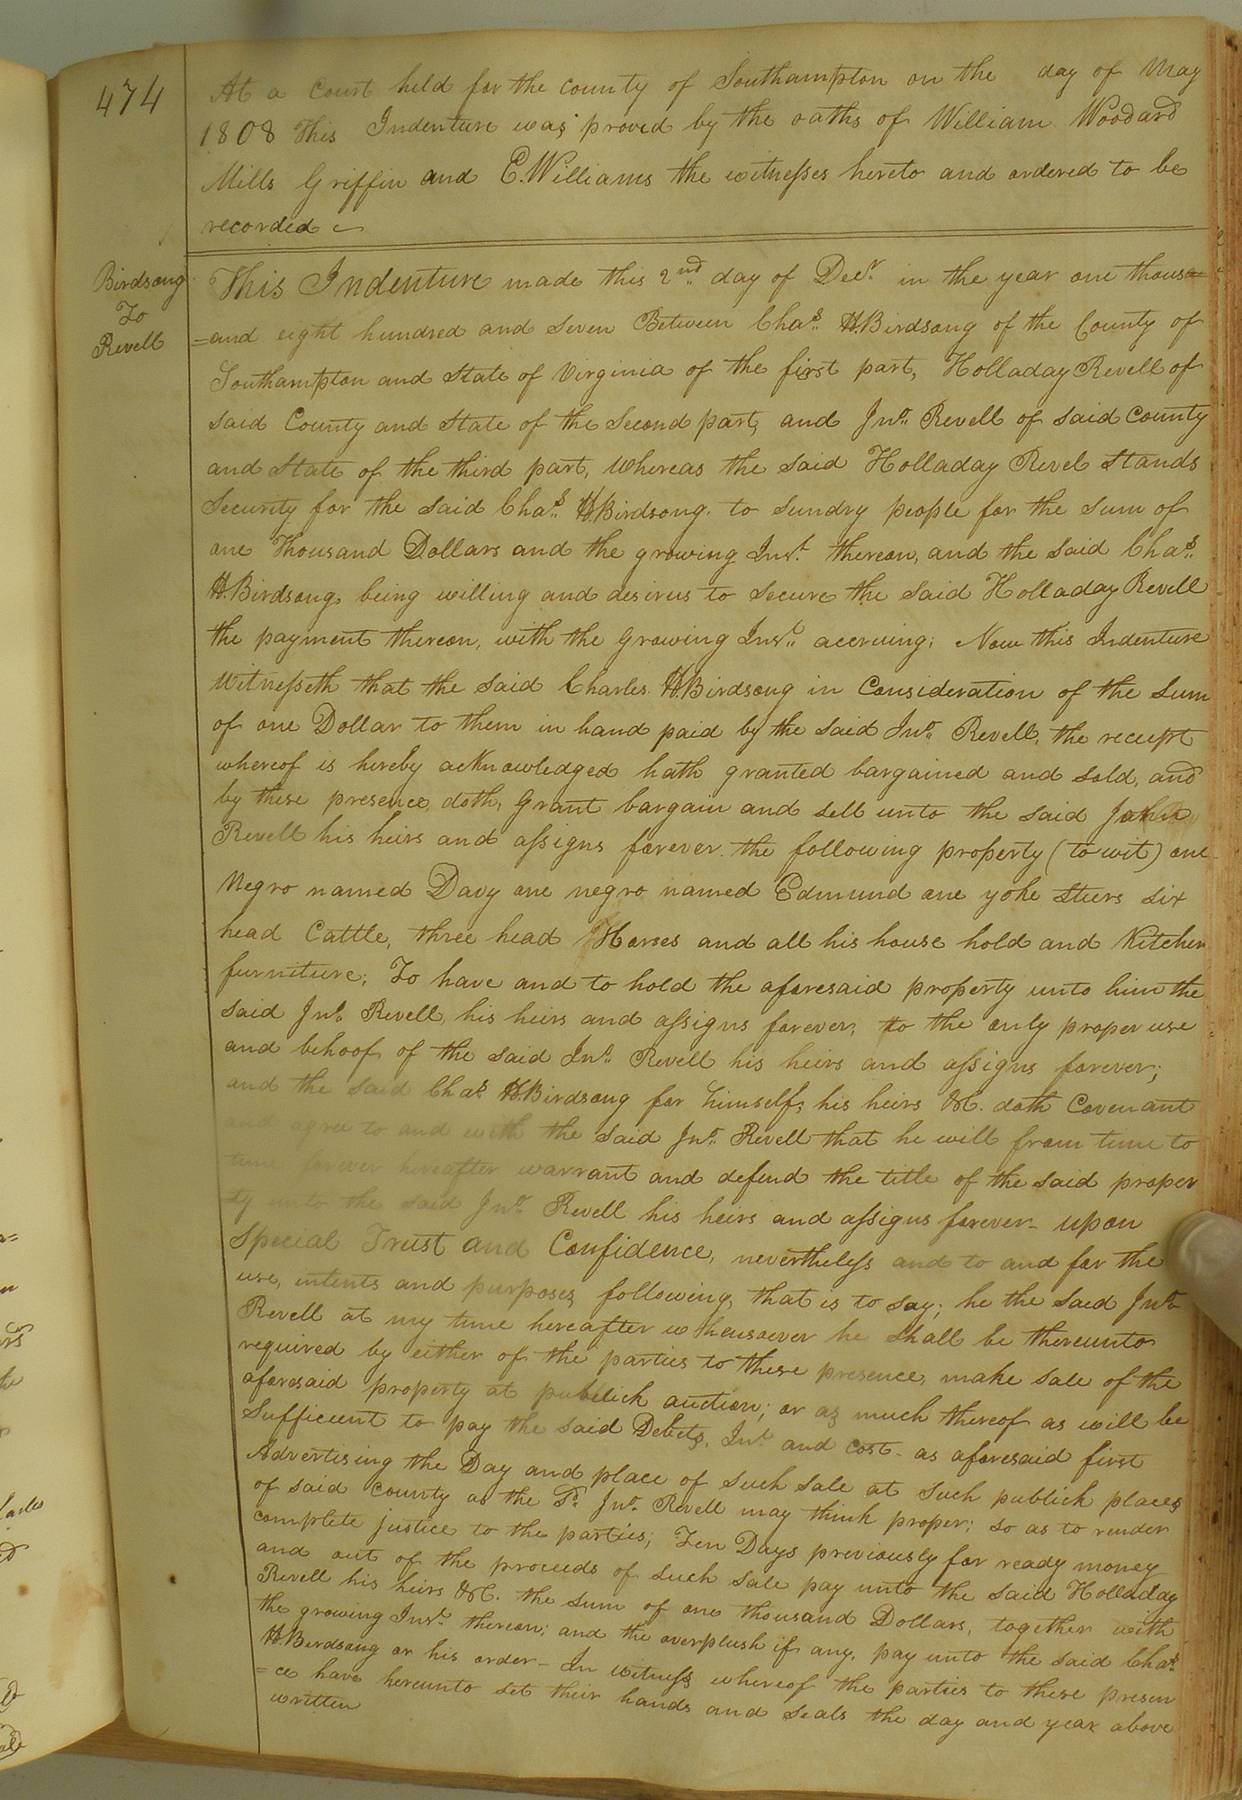 474
At a Court held for the County of Southampton on the day of May
1808 This Indenture was proved by the oaths of William Woodard
Mills Griffin and E. Williams the witnesses hereto and ordered to be
recorded
Birdsong
To
Revell
This Indenture made this 2nd day of Decr. in the year one thous=
=and eight hundred and Seven Between Chas. H. Birdsong of the County of
Southampton and State of Virginia of the first part, Holladay Revell of
said County and State of the Second part, and Jno. Revell of said County
and State of the third part, Whereas the said Holladay Revel Stands
Security for the said Chas. H. Birdsong to sundry people for the Sum of
one Thousand Dollars and the growing Inst. thereon, and the said Chas.
H. Birdsong being willing and desirus to Secure the said Holladay Revell
the payment thereon, with the growing Inst. accruing; Now this Indenture
Witnesseth that the said Charles H. Birdsong in Consideration of the Sum
of one Dollar to them in hand paid by the said Jno. Revell, the receipt
whereof is hereby acknowledged hath granted bargained and sold, and
by these presence doth, Grant bargain and sell unto the said John
Revell his heirs and assigns forever the following property (to wit) one
Negro named Davy one negro named Edmund one yoke steers six
head Cattle, three head Horses and all his house hold and Kitchen
furniture; To have and to hold the aforesaid property unto him the
said Jno. Revell, his heirs and assigns forever, to the only proper use
and behoof of the said Jno. Revell his heirs and assigns forever;
and the said Chas. H. Birdsong for himself, his heirs &C. doth Covenant
and agree to and with the said Jno. Revell that he will from time to
time forever hereafter warrant and defend the title of the said proper
ty unto the said Jno. Revell his heirs and assigns forever - upon
Special Trust and Confidence, nevertheless and to and for the
use, intents and purposes following, that is to say; he the said Jno.
Revell at my time hereafter whensoever he shall be thereunto
required by either of the parties to these presence, make sale of the
aforesaid property at publick auction; or as much thereof as will be
Sufficient to pay the said Debts, Int. and cost - as aforesaid first
Advertising the Day and place of Such Sale at Such publick places
of said County as the Sd. Jno. Revell may think proper; so as to render
complete justice to the parties; Ten Days previously for ready money
and out of the proceeds of such sale pay unto the said Holladay
Revell his heirs &C. the sum of one thousand Dollars, together with
the growing Inst. thereon; and the overplush if any, pay unto the said Chas.
H. Birdsong or his order - In witness whereof the parties to these presen
=ce have hereunto set their hands and seals the day and year above
written